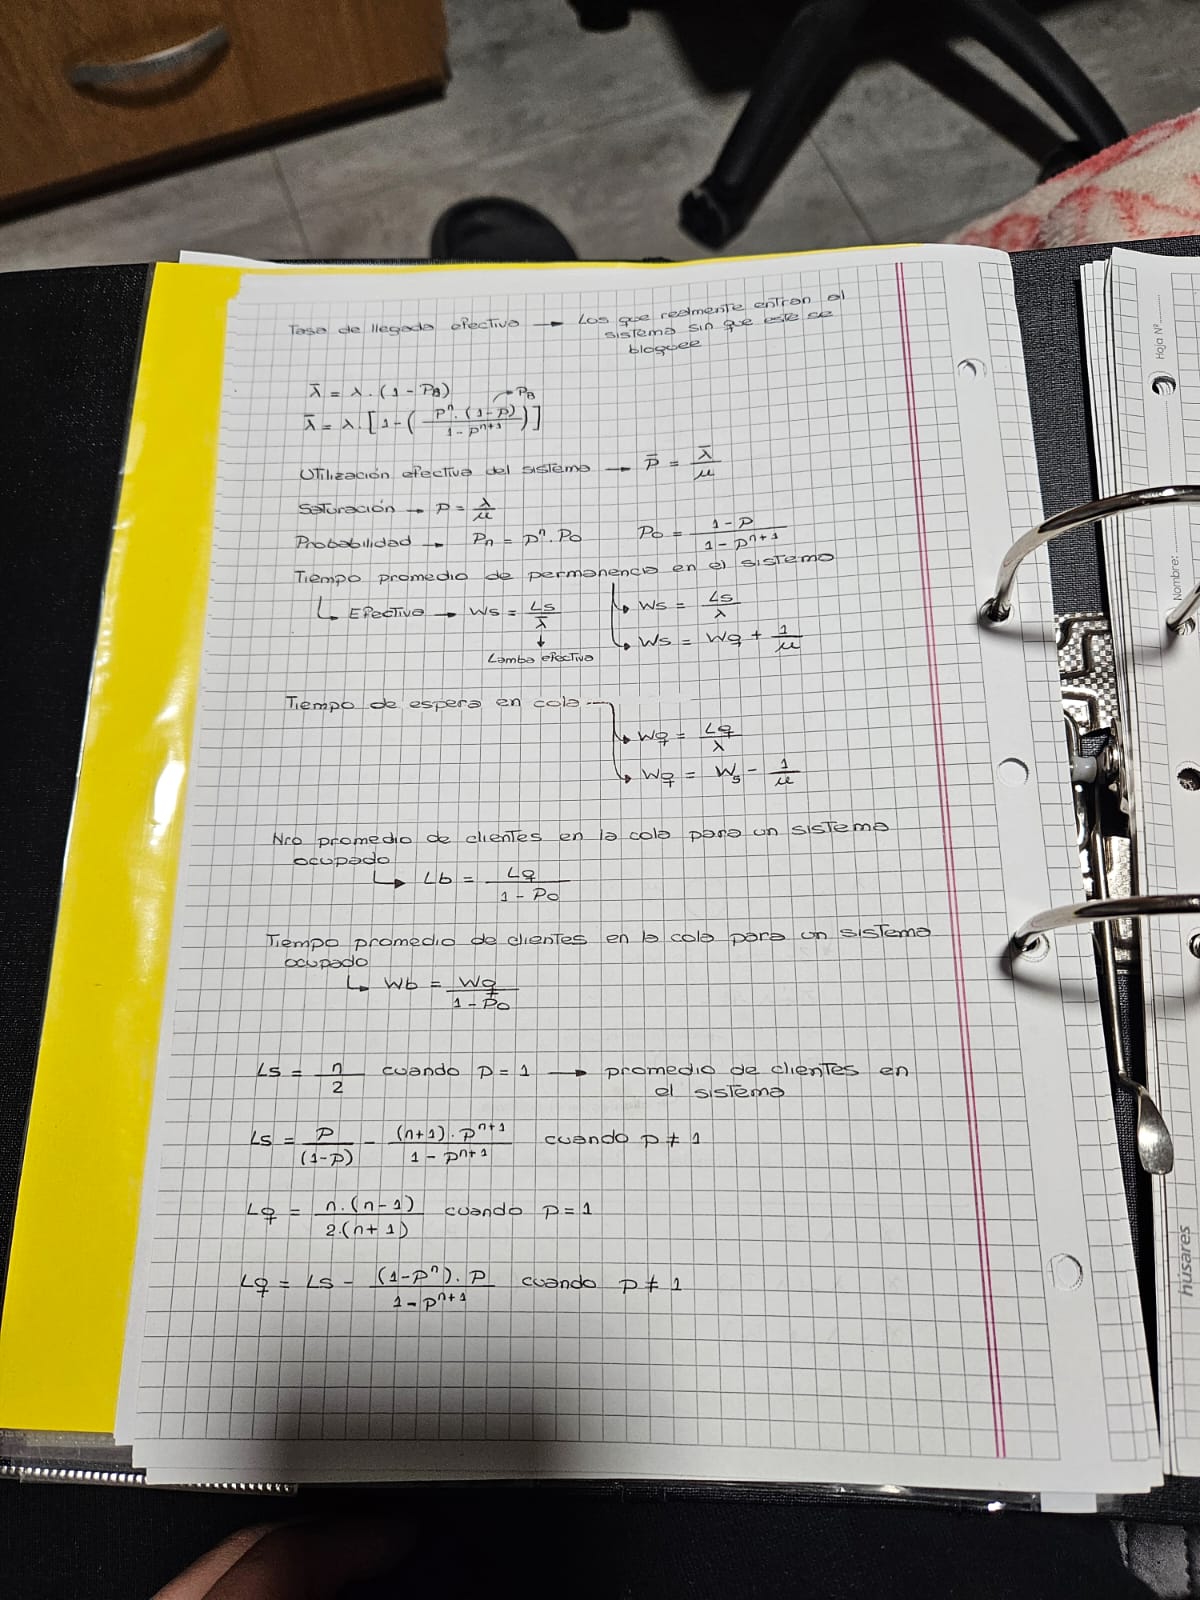 Tasa de llegada efectiva → Los que realmente entran al
sistema sin que este se
bloquee
λ̄ = λ . (1 - PB)
→ PB
λ̄ = λ . [1 - (pⁿ . (1-p) / 1 - pⁿ⁺¹)]
Utilización efectiva del sistema → p̄ = λ̄ / μ
Saturación → p = λ / μ
Probabilidad → Pn = pⁿ . P0    P0 = 1 - p / 1 - pⁿ⁺¹
Tiempo promedio de permanencia en el sistema
↳ Efectivo → Ws = Ls / λ̄    ↳ Ws = Ls / λ
↓    ↳ Ws = Wq + 1 / μ
Lamba efectivo
Tiempo de espera en cola
↳ Wq = Lq / λ
↳ Wq = Ws - 1 / μ
Nro promedio de clientes en la cola para un sistema
ocupado
↳ Lb = Lq / 1 - P0
Tiempo promedio de clientes en la cola para un sistema
ocupado
↳ Wb = Wq / 1 - P0
Ls = n / 2 cuando p = 1 → promedio de clientes en
el sistema
Ls = p / (1-p) - (n+1) . pⁿ⁺¹ / 1 - pⁿ⁺¹ cuando p ≠ 1
Lq = n . (n-1) / 2.(n+1) cuando p = 1
Lq = Ls - (1-pⁿ) . p / 1 - pⁿ⁺¹ cuando p ≠ 1
Hoja Nº
Nombre:
husares